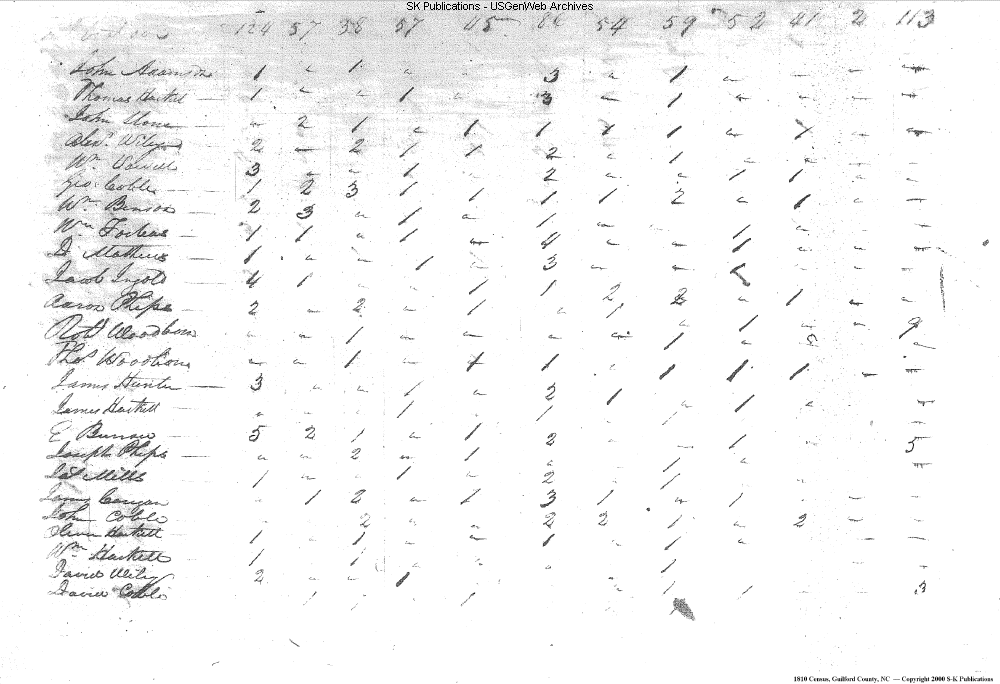 SK Publications - USGenWeb Archives
124 57 38 57 45 86 54 59 52 41 2 113
John Adamson 1 1 3 1
Thomas Haskell 1 1 3 1
John 2 1 1 1 1 1 1
Alexr. Wiley 2 2 1 1 2 1
Wm. 3 1 2 1 1
Geo. Coble 1 2 3 1 1 1 1 2 1
Wm. Benson 2 3 1 1 1
Wm. Forbes 1 1 1 4 1
D. Mathews 1 1 3 1
Jacob Ingold 4 1 1 1 2 2 1
Aaron Phips 2 2 1 1 9
Robt. Woodborn 1 1 3
Thos. Woodborn 1 1 1 1 1
James Hunter 3 1 2 1 1
James Haskell 1 1 1
E. Burrow 5 2 1 1 2 1 5
Joseph Phips 2 1 1
Mills 1 1 2 1
1 2 1 3 1 1
John Coble 2 2 2 1 2
Haskell 1 1 1 1
Wm. Haskell 1 1 1
David Wiley 2 1
David Coble 1 1 1 1 1 3
1810 Census, Guilford County, NC — Copyright 2000 S-K Publications